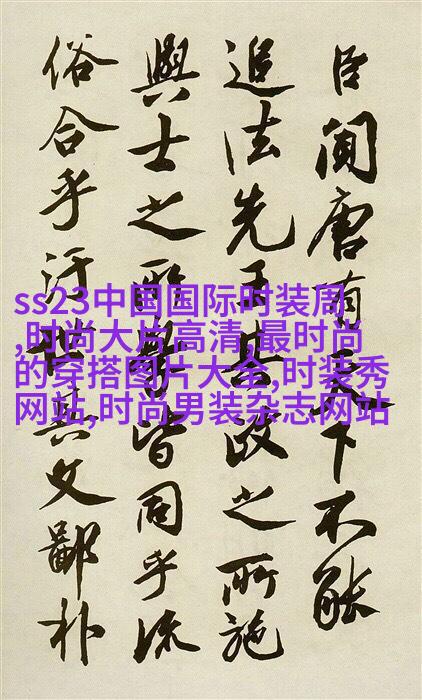 臣聞唐有天下不能
追法先王法政之所施
與士之所皆同乎流
俗合乎汙世其文鄙朴
ss23中国国际时装周
,时尚大片高清,最时尚
的穿搭图片大全,时装秀
网站,时尚男装杂志网站